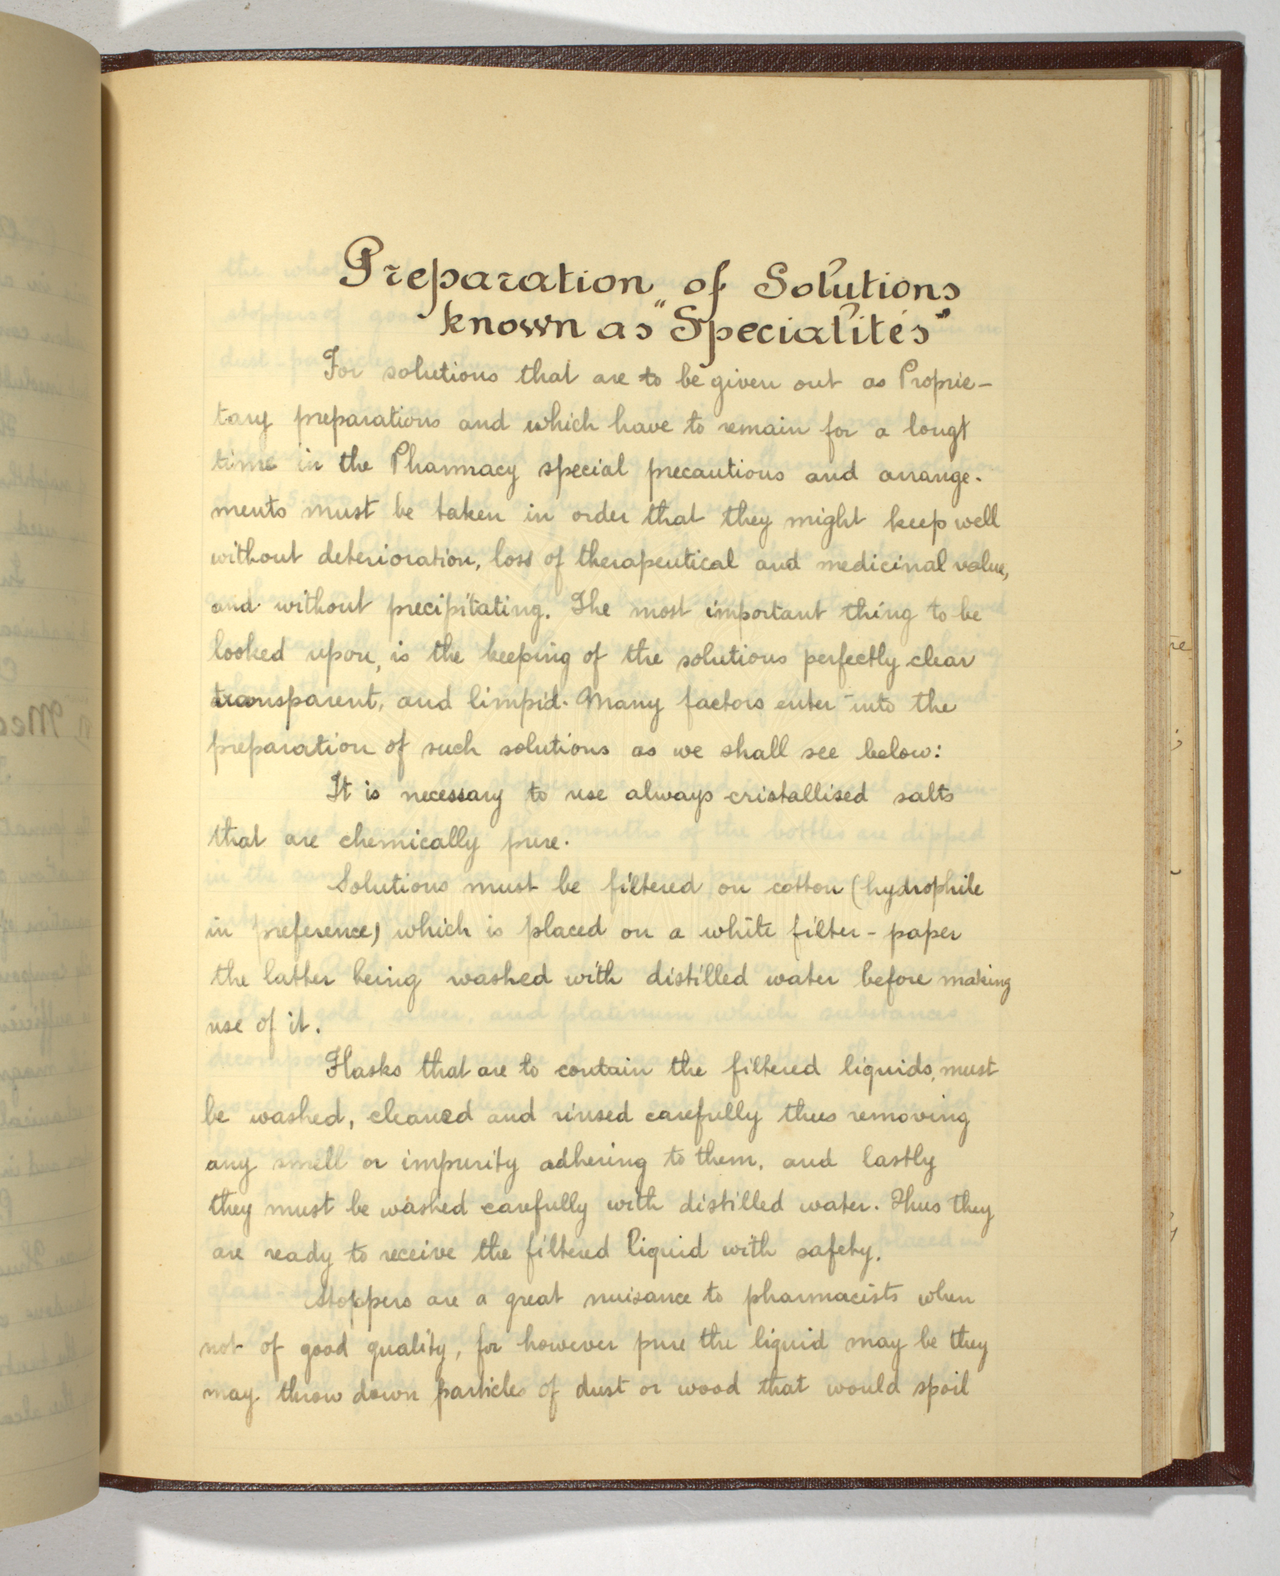 Preparation of Solutions
known as "Specialités"
For solutions that are to be given out as Proprie-
tary preparations and which have to remain for a longt
time in the Pharmacy special precautions and arrange-
ments must be taken in order that they might keep well
without deterioration, loss of therapeutical and medicinal value,
and without precipitating. The most important thing to be
looked upon, is the keeping of the solutions perfectly clear
transparent, and limpid. Many factors enter into the
preparation of such solutions as we shall see below:
It is necessary to use always cristallised salts
that are chemically pure.
Solutions must be filtered on cotton (hydrophile
in preference) which is placed on a white filter-paper
the latter being washed with distilled water before making
use of it.
Flasks that are to contain the filtered liquids, must
be washed, cleaned and rinsed carefully thus removing
any smell or impurity adhering to them, and lastly
they must be washed carefully with distilled water. Thus they
are ready to receive the filtered liquid with safety.
Stoppers are a great nuisance to pharmacists when
not of good quality, for however pure the liquid may be they
may throw down particles of dust or wood that would spoil